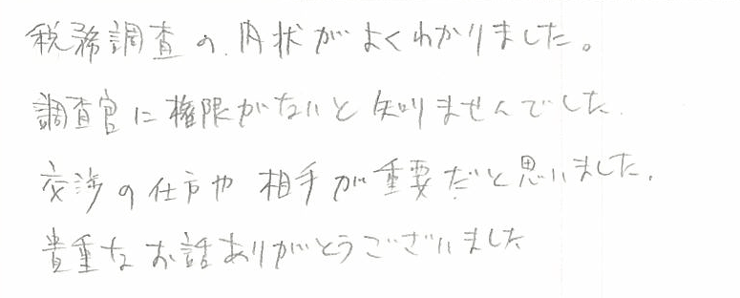 税務調査の内状がよくわかりました。
調査官に権限がないと知りませんでした.
交渉の仕方や相手が重要だと思いました.
貴重なお話ありがとうございました